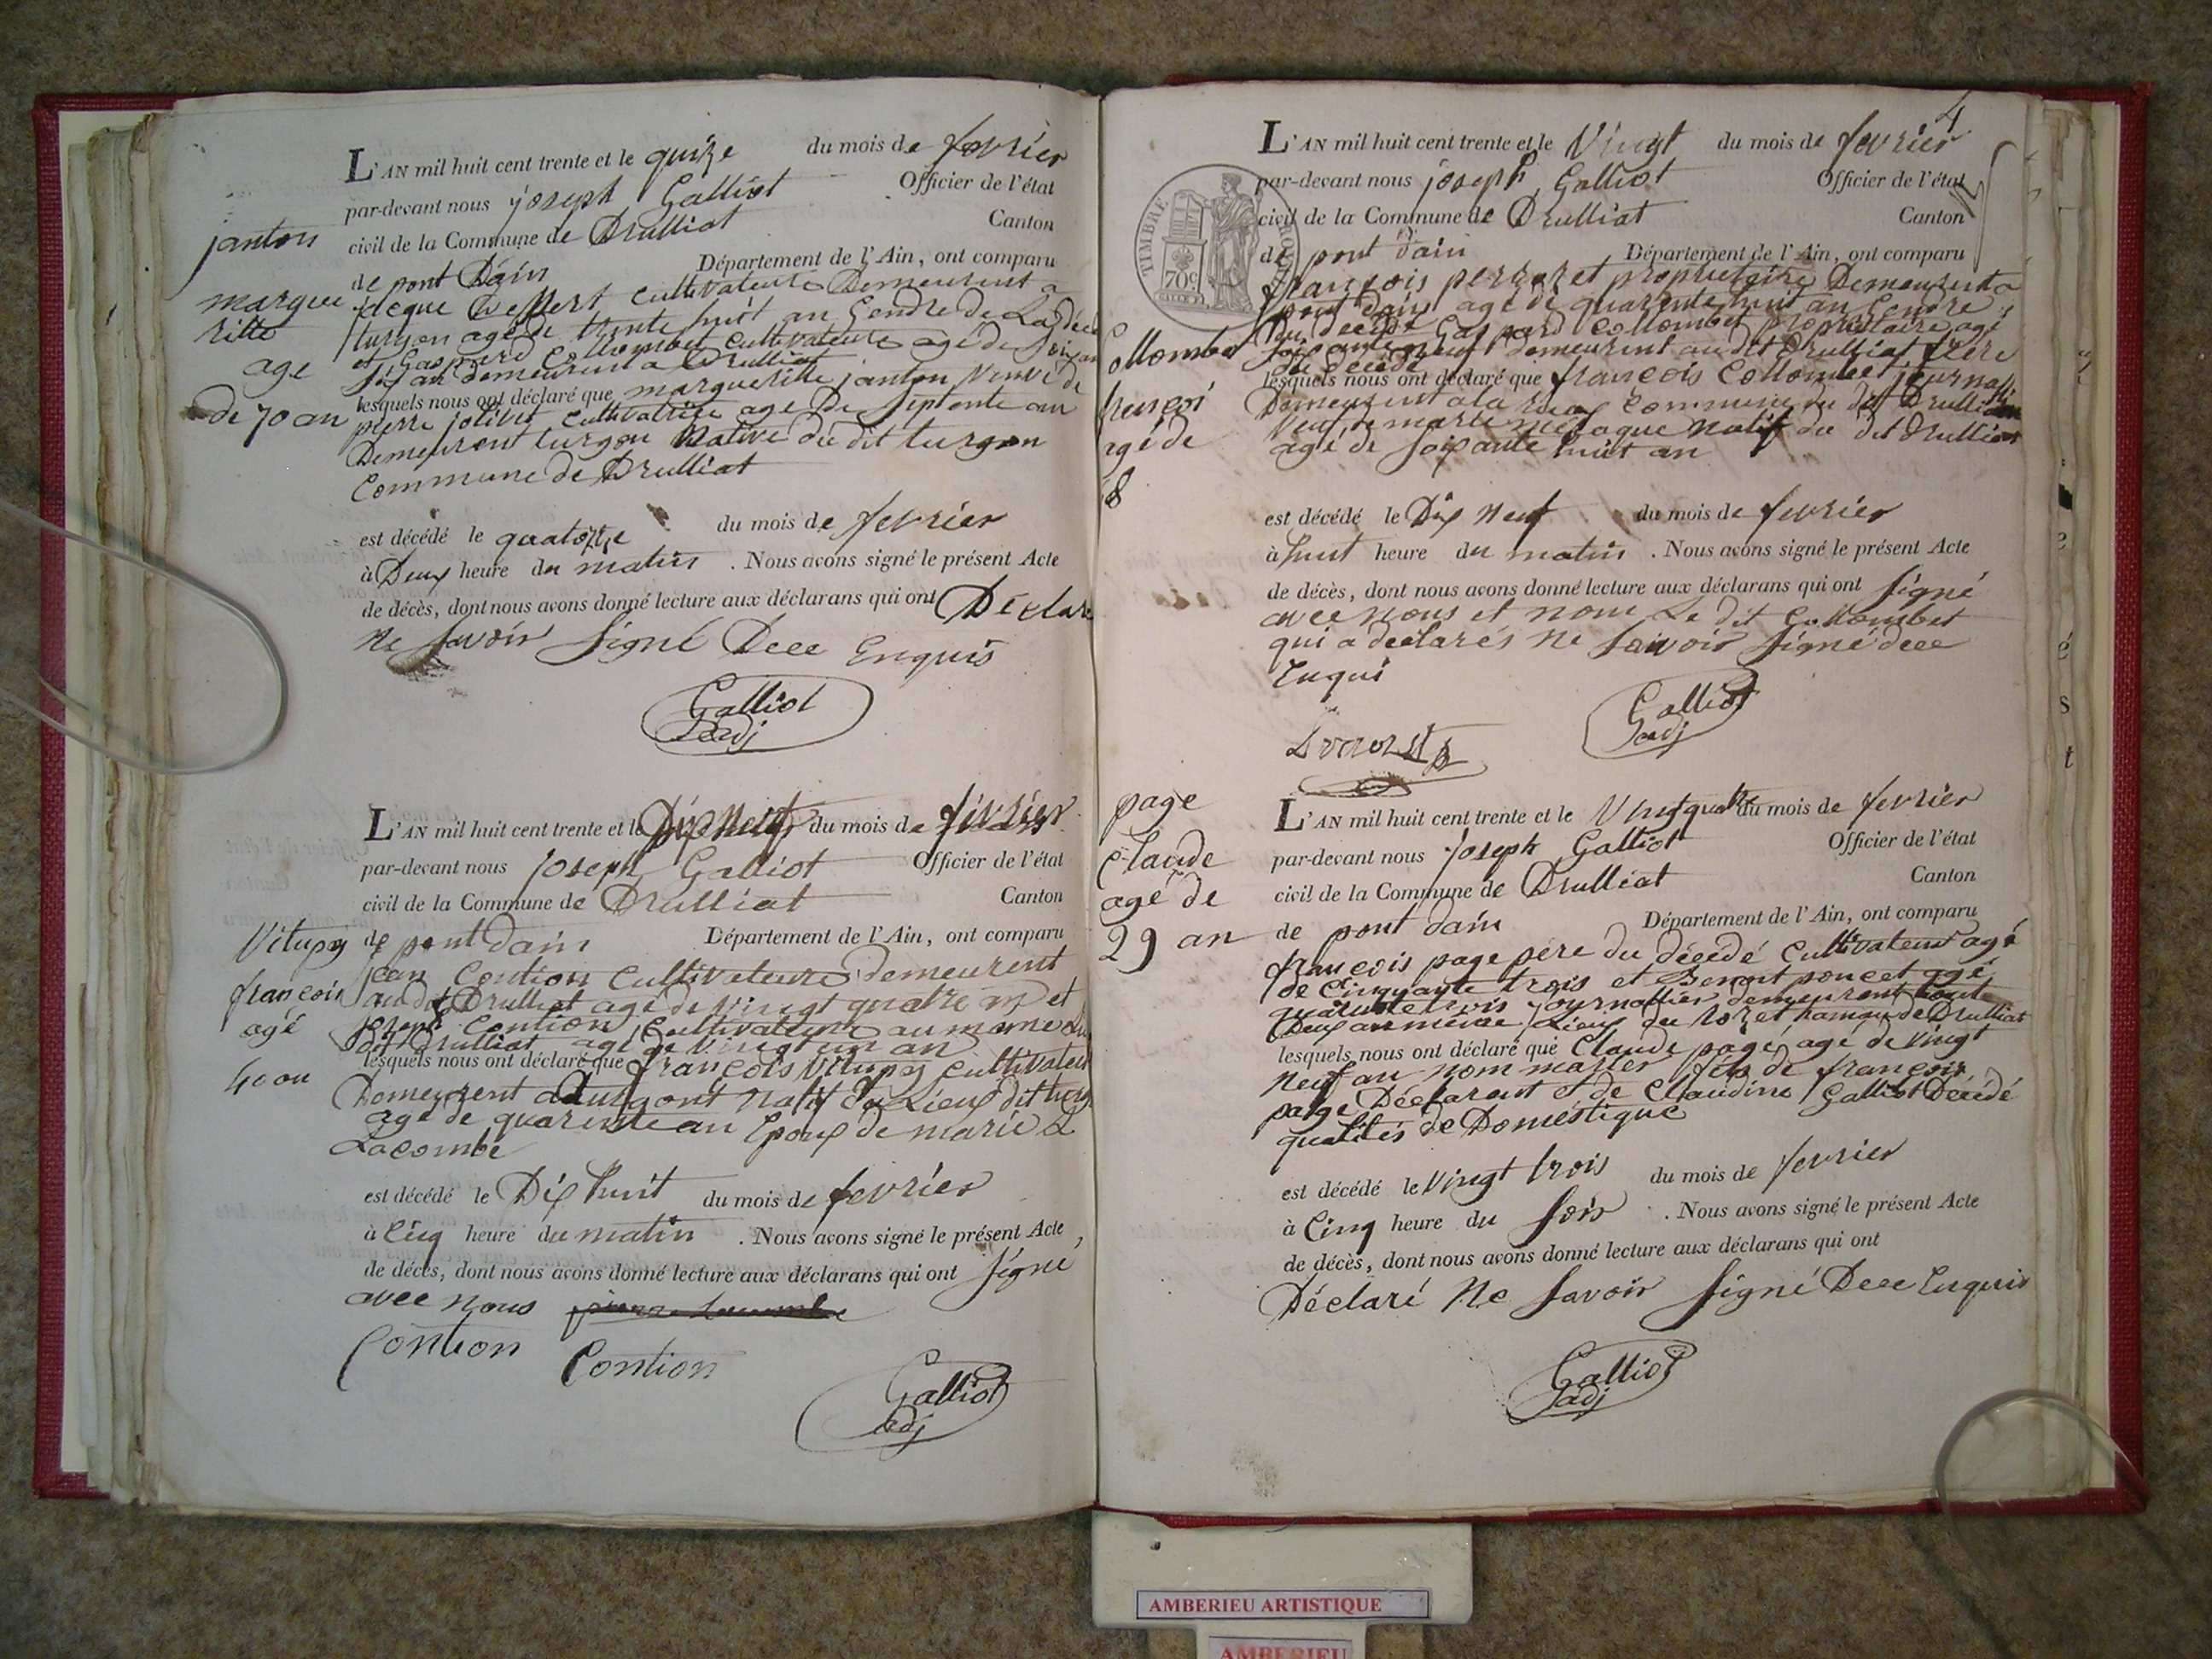 L'AN mil huit cent trente et le quinze du mois de fevrier
par-devant nous joseph Galliot Officier de l'état
civil de la Commune de Drulliat Canton
de pont Dain Département de l'Ain, ont comparu
janton
marguerite
ritte
age
de 70 an
cultivateure Demeurent a
turgon agé de trente huit an Gendre de La
et Gaspard Collombet cultivateure agé de
demeurent a Drulliat
lesquels nous ont déclaré que margueritte janton veuve de
pierre jolivet cultivatrice age de septente an
Demeurent turgon Native du dit turgon
Commune de Drulliat
est décédé le quatorze du mois de fevrier
à Deux heure du matin . Nous avons signé le présent Acte
de décès, dont nous avons donné lecture aux déclarans qui ont Déclare
Ne savoir signé Dece Enquis
Galliot
adj
L'AN mil huit cent trente et le Dix Neuf du mois de fevrier
par-devant nous joseph Galliot Officier de l'état
civil de la Commune de Drulliat Canton
de pont dain Département de l'Ain, ont comparu
Vitupy
francoin
agé
40 an
jean Contion cultivateure demeurent
au dit Drulliat agé de vingt quatre an et
joseph Contion cultivateure au meme
dit Drulliat agé de vingt un an
lesquels nous ont déclaré que francois Vitupy cultivateur
Demeurent a turgont natif du Lieux dit
agé de quarente an Epoux de marie
Lacombe
est décédé le Dix huit du mois de fevrier
à Cinq heure du matin . Nous avons signé le présent Acte
de décès, dont nous avons donné lecture aux déclarans qui ont signé
avec nous
Contion Contion
Galliot
adj
4
L'AN mil huit cent trente et le Vingt du mois de fevrier
par-devant nous joseph Galliot Officier de l'état
civil de la Commune de Drulliat Canton
de pont dain Département de l'Ain, ont comparu
TIMBRE ROYAL
70 c
Collombet
françoi
agé de
8
françois perraret proprietaire Demeurent a
pont dain agé de quarente huit an Gendre
Du décédé Gaspard Collombet propriétaire agé
soixante neuf demeurent au dit Drulliat frere
du décédé
lesquels nous ont déclaré que francois Collombet journalli
Demeurent a la commune du dit Drulliat
Veuf de marie natif du dit Drulliat
agé de soixante huit an
est décédé le Dix Neuf du mois de fevrier
à huit heure du matin . Nous avons signé le présent Acte
de décès, dont nous avons donné lecture aux déclarans qui ont signé
avec nous et nom Le dit Collombet
qui a déclarés ne savoir signé dece
Enqui
Galliot
adj
page
Claude
agé de
29 an
L'AN mil huit cent trente et le Vingt quatre du mois de fevrier
par-devant nous joseph Galliot Officier de l'état
civil de la Commune de Drulliat Canton
de pont dain Département de l'Ain, ont comparu
francois page pere du décédé cultivateur agé
de Cinquante trois et Benoit poncet agé
quarente trois journallier demeurent toute
Deux au meme Lieux du hameau de Drulliat
lesquels nous ont déclaré que Claude page agé de vingt
Neuf an nom marier fils de francois
page Déclarent et de Claudine Galliot Décédé
qualités de Domestique
est décédé le vingt trois du mois de fevrier
à Cinq heure du soir . Nous avons signé le présent Acte
de décès, dont nous avons donné lecture aux déclarans qui ont
Déclaré Ne savoir signé Dece Enquis
Galliot
adj
AMBERIEU ARTISTIQUE
AMBERIEU